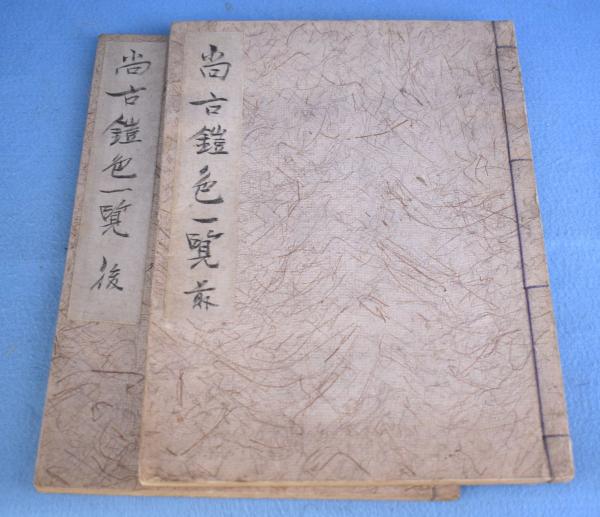 尚古鎧色一覧 前
尚古鎧色一覧 後